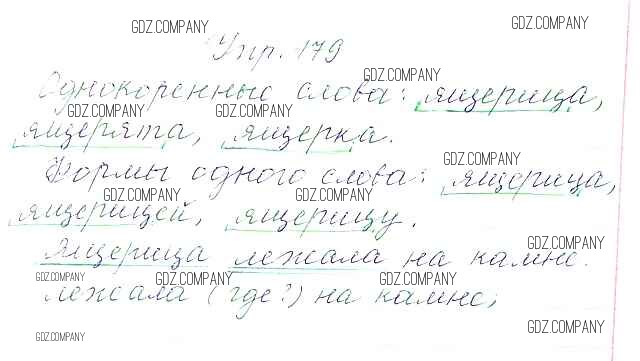 GDZ.COMPANY GDZ.COMPANY
Упр. 179
GDZ.COMPANY
Однокоренные слова: ящерица,
GDZ.COMPANY GDZ.COMPANY
ящерята, ящерка.
GDZ.COMPANY
Формы одного слова: ящерица,
GDZ.COMPANY GDZ.COMPANY
ящерицей, ящерицу.
GDZ.COMPANY
Ящерица лежала на камне.
GDZ.COMPANY GDZ.COMPANY GDZ.COMPANY
лежала (где?) на камне;
GDZ.COMPANY GDZ.COMPANY